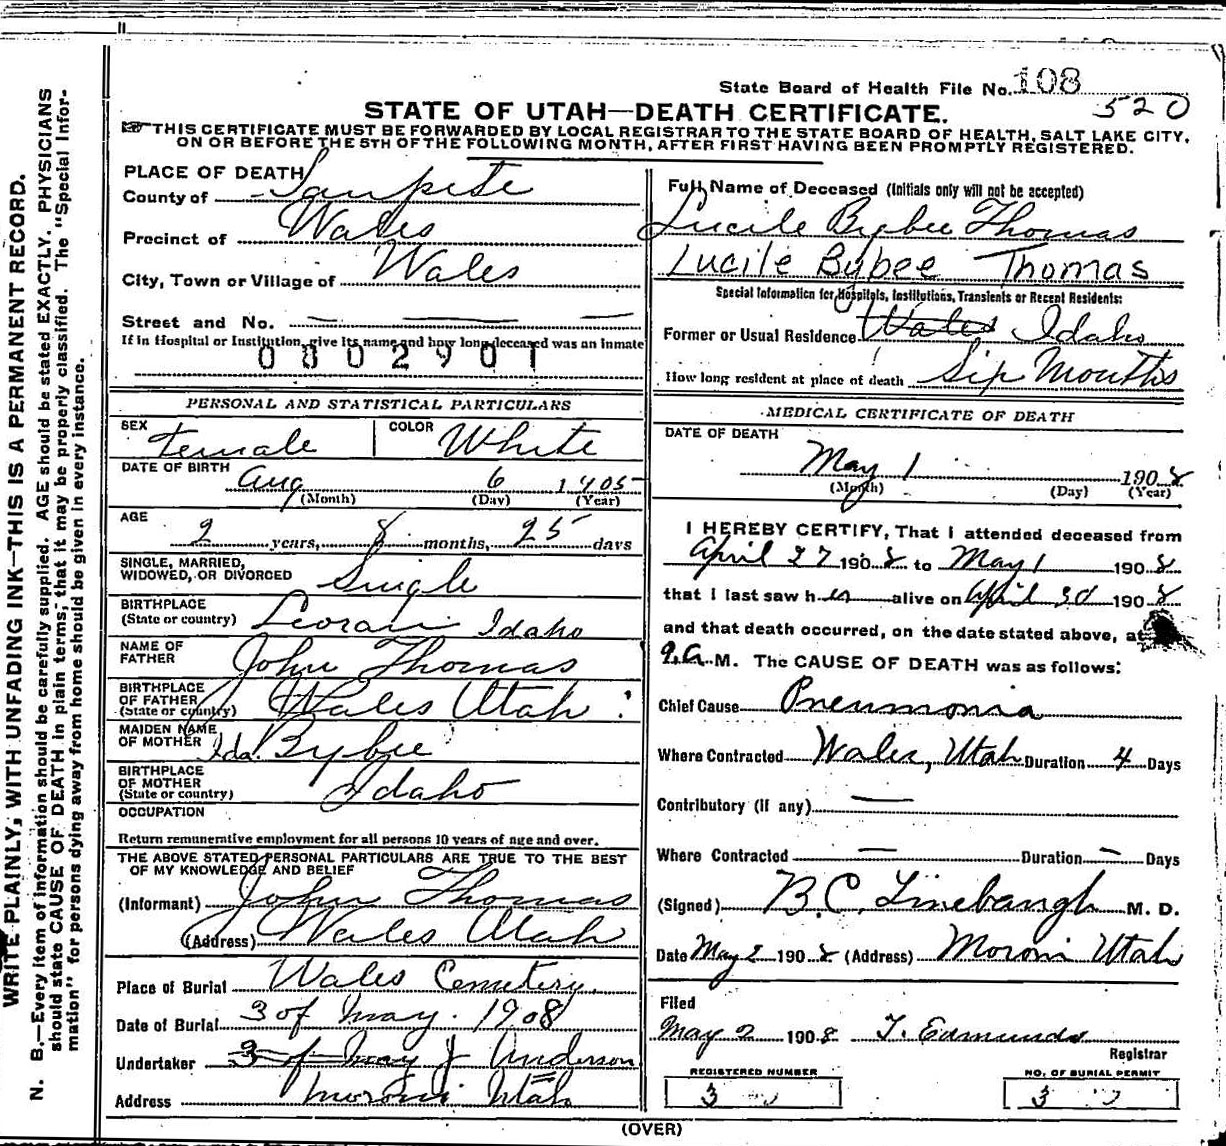 State Board of Health File No. 108
520
STATE OF UTAH—DEATH CERTIFICATE.
THIS CERTIFICATE MUST BE FORWARDED BY LOCAL REGISTRAR TO THE STATE BOARD OF HEALTH, SALT LAKE CITY,
ON OR BEFORE THE 5TH OF THE FOLLOWING MONTH, AFTER FIRST HAVING BEEN PROMPTLY REGISTERED.
PLACE OF DEATH
County of Sanpete
Precinct of Wales
City, Town or Village of Wales
Street and No. — — —
If in Hospital or Institution, give its name and how long deceased was an inmate
0802901
PERSONAL AND STATISTICAL PARTICULARS
SEX Female COLOR White
DATE OF BIRTH
Aug 6 1905
(Month) (Day) (Year)
AGE
2 years, 8 months, 25 days
SINGLE, MARRIED,
WIDOWED, OR DIVORCED Single
BIRTHPLACE
(State or country) Idaho
NAME OF
FATHER John Thomas
BIRTHPLACE
OF FATHER
(State or country) Wales Utah
MAIDEN NAME
OF MOTHER Ida Bybee
BIRTHPLACE
OF MOTHER
(State or country) Idaho
OCCUPATION
Return remunerative employment for all persons 10 years of age and over.
THE ABOVE STATED PERSONAL PARTICULARS ARE TRUE TO THE BEST
OF MY KNOWLEDGE AND BELIEF
(Informant) John Thomas
(Address) Wales Utah
Place of Burial Wales Cemetery.
Date of Burial 3 of May. 1908
Undertaker 3 of May J Anderson
Address Moroni Utah
Full Name of Deceased (Initials only will not be accepted)
Lucile Bybee Thomas
Lucile Bybee Thomas
Special Information for Hospitals, Institutions, Transients or Recent Residents:
Former or Usual Residence Wales Idaho
How long resident at place of death Six Months
MEDICAL CERTIFICATE OF DEATH
DATE OF DEATH
May 1 1908
(Month) (Day) (Year)
I HEREBY CERTIFY, That I attended deceased from
April 27 1908 to May 1 1908
that I last saw her alive on April 30 1908
and that death occurred, on the date stated above, at
9.A. M. The CAUSE OF DEATH was as follows:
Chief Cause Pneumonia
Where Contracted Wales, Utah Duration 4 Days
Contributory (if any) —
Where Contracted — Duration — Days
(Signed) B.C. Linebaugh M. D.
Date May 2 1908 (Address) Moroni Utah
Filed
May 2 1908 T. Edmunds
Registrar
REGISTERED NUMBER
3
NO. OF BURIAL PERMIT
3
(OVER)
WRITE PLAINLY, WITH UNFADING INK—THIS IS A PERMANENT RECORD.
N. B.—Every item of information should be carefully supplied. AGE should be stated EXACTLY. PHYSICIANS
should state CAUSE OF DEATH in plain terms, that it may be properly classified. The "Special Infor-
mation" for persons dying away from home should be given in every instance.